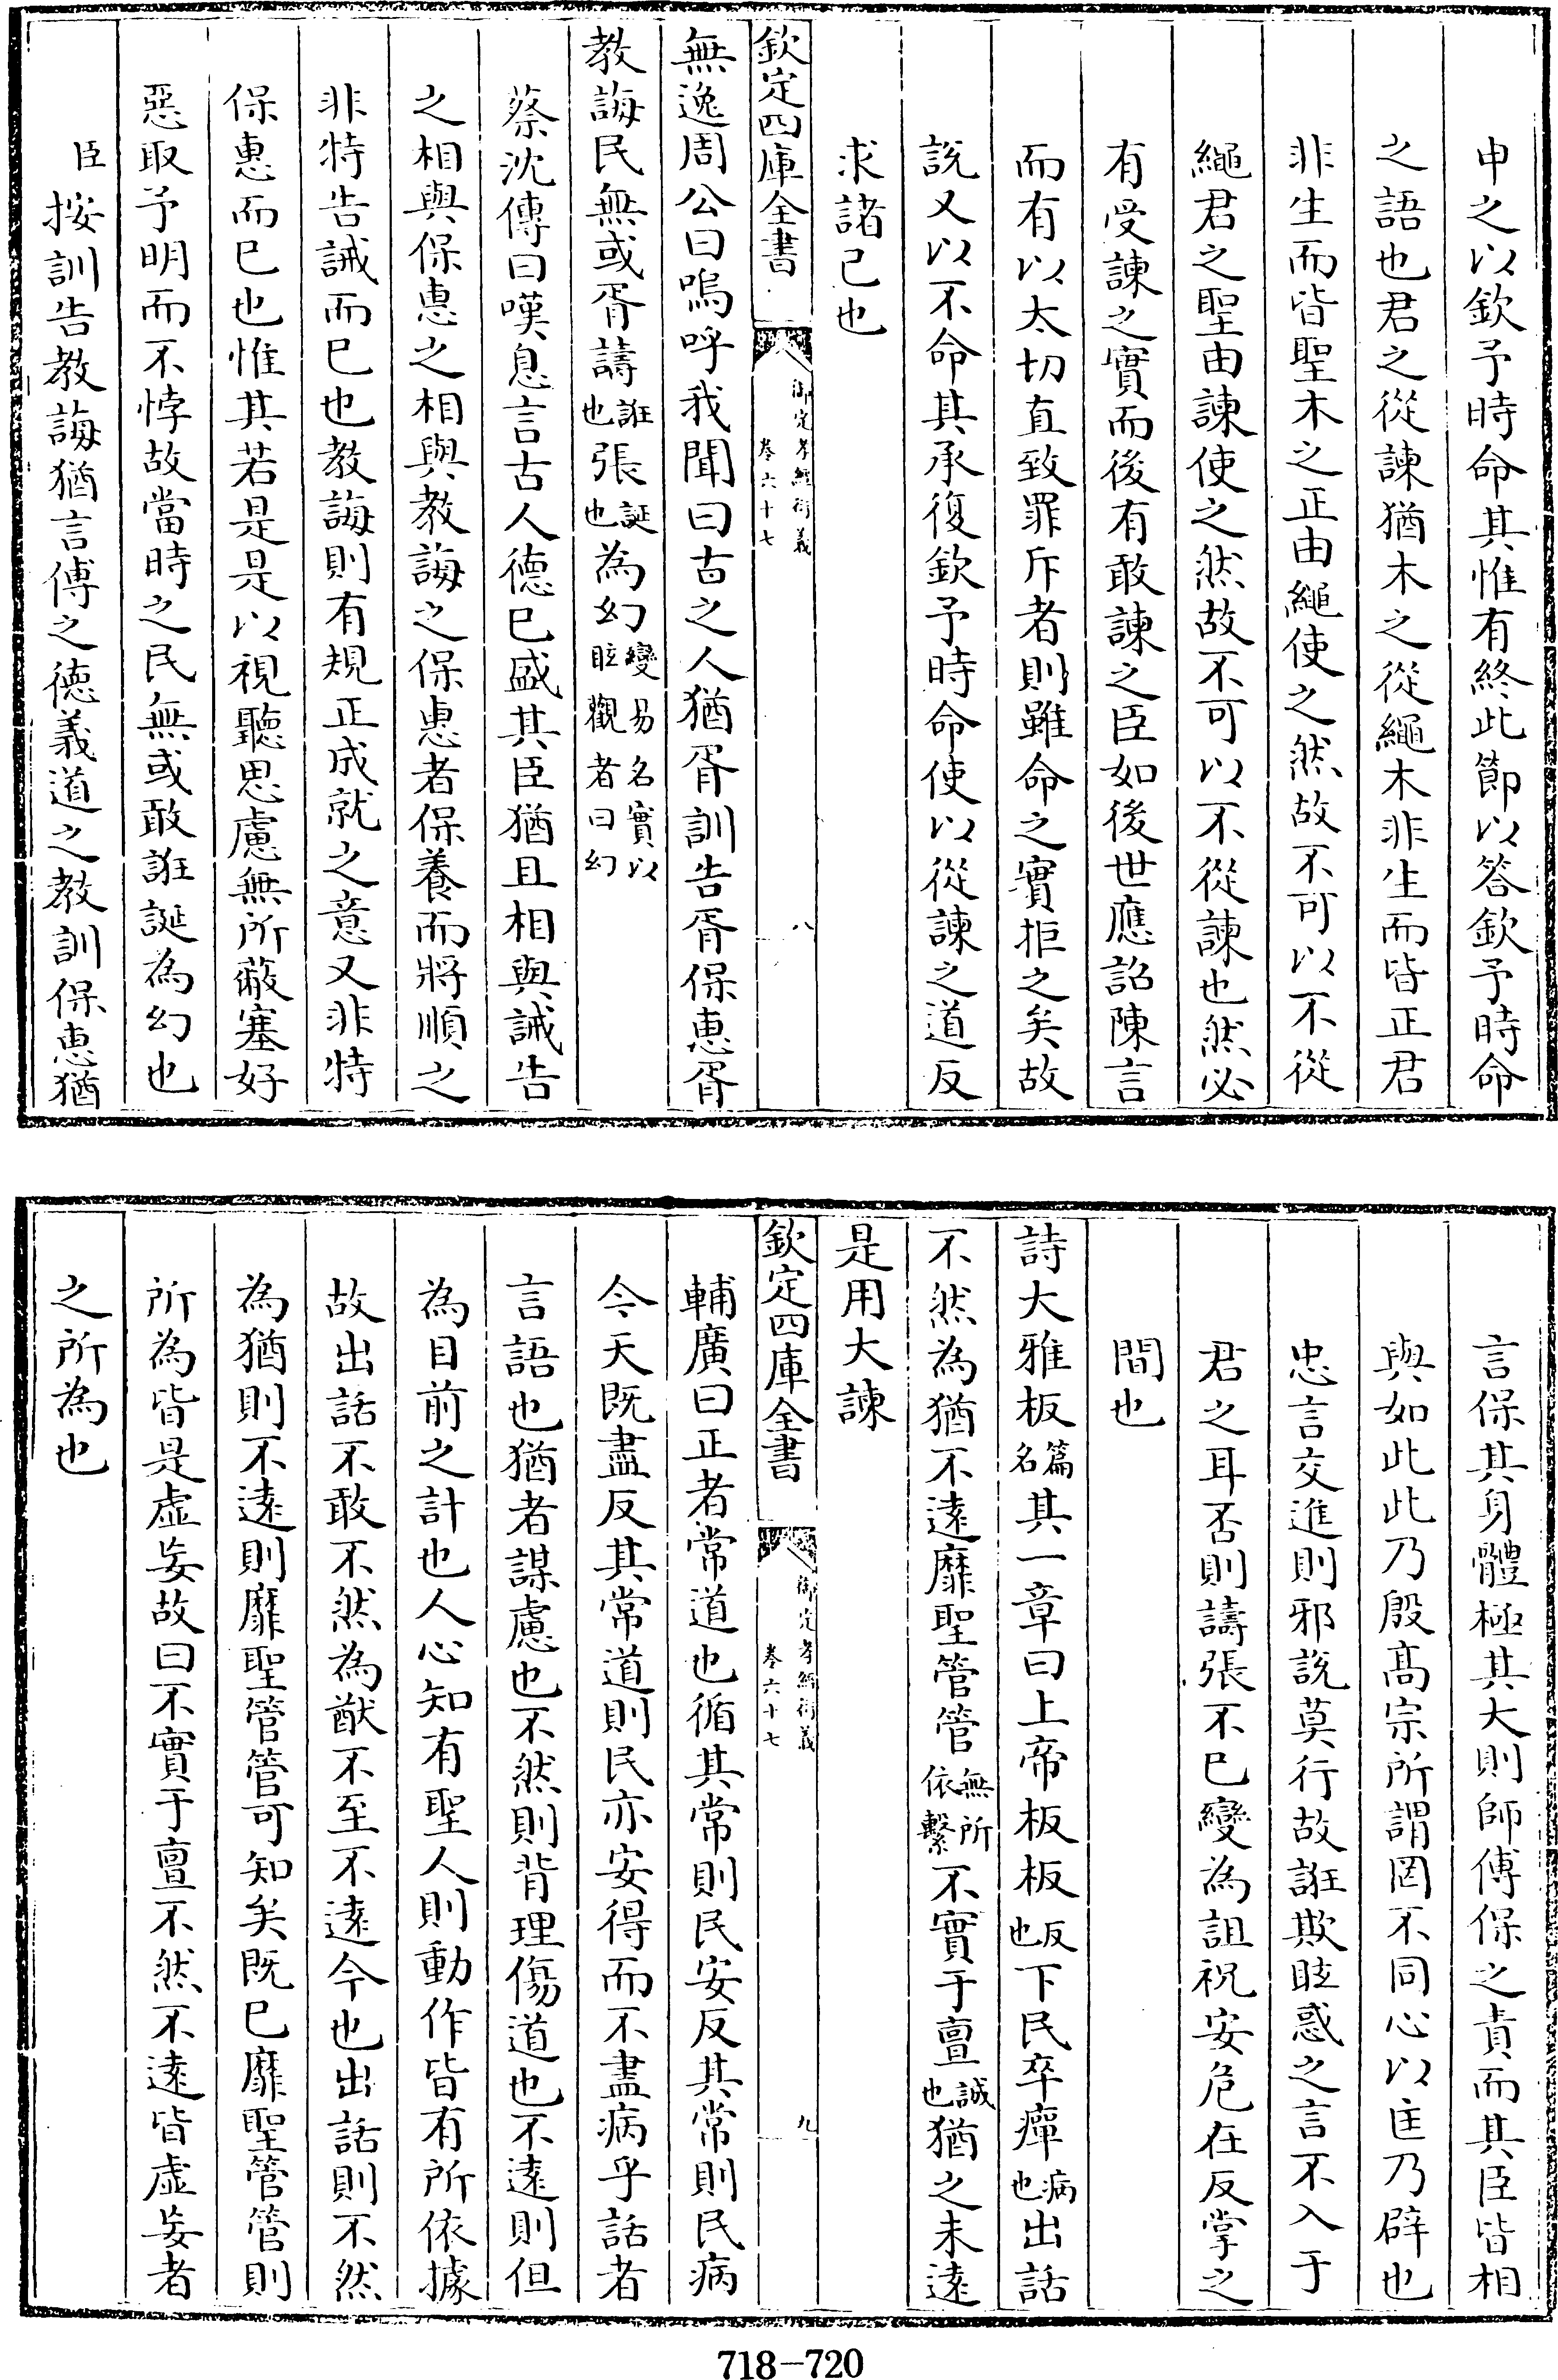 申之以欽予時命其惟有終此節以答欽予時命
之語也君之從諫猶木之從繩木非生而皆正君
非生而皆聖木之正由繩使之然故不可以不從
繩君之聖由諫使之然故不可以不從諫也然必
有受諫之實而後有敢諫之臣如後世應詔陳言
而有以太切直致罪斥者則雖命之實拒之矣故
說又以不命其承復欽予時命使以從諫之道反
求諸已也
欽定四庫全書
御定孝經衍義
卷六十七
八
無逸周公曰嗚呼我聞曰古之人猶胥訓告胥保惠胥
教誨民無或胥譸誑也張誕也為幻變易名實以眩觀者曰幻
蔡沈傳曰嘆息言古人德已盛其臣猶且相與誡告
之相與保惠之相與教誨之保惠者保養而將順之
非特告誡而已也教誨則有規正成就之意又非特
保惠而已也惟其若是是以視聽思慮無所蔽塞好
惡取予明而不悖故當時之民無或敢誑誕為幻也
臣按訓告教誨猶言傅之德義道之教訓保惠猶
言保其身體極其大則師傅保之責而其臣皆相
與如此此乃殷高宗所謂罔不同心以匡乃辟也
忠言交進則邪說莫行故誑欺眩惑之言不入于
君之耳否則譸張不已變為詛祝安危在反掌之
間也
詩大雅板篇名其一章曰上帝板板反也下民卒癉病也出話
不然為猶不遠靡聖管管無所依繫不實于亶誠也猶之未遠
是用大諫
欽定四庫全書
御定孝經衍義
卷六十七
九
輔廣曰正者常道也循其常則民安反其常則民病
今天既盡反其常道則民亦安得而不盡病乎話者
言語也猶者謀慮也不然則背理傷道也不遠則但
為目前之計也人心知有聖人則動作皆有所依據
故出話不敢不然為猷不至不遠今也出話則不然
為猶則不遠則靡聖管管可知矣既已靡聖管管則
所為皆是虛妄故曰不實于亶不然不遠皆虛妄者
之所為也
718-720